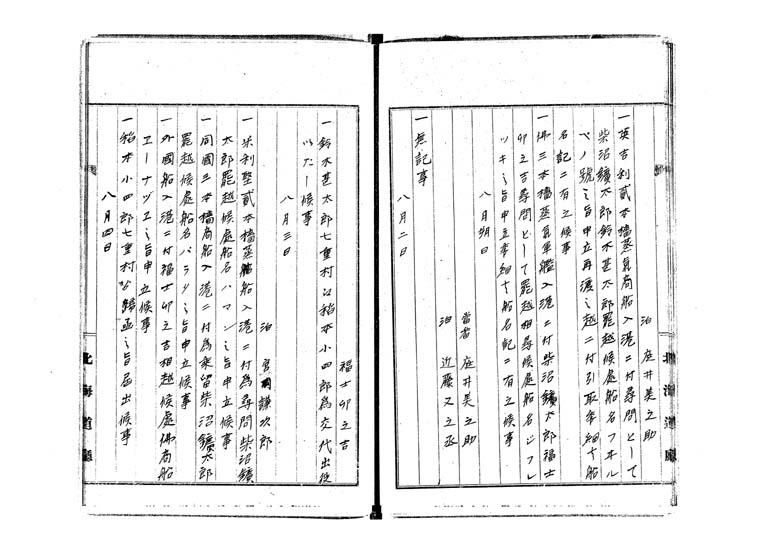 泊　庭井美之助
一英吉利貳本檣蒸氣商船入港ニ付尋問として
柴沼鑛太郎鈴木甚太郎罷越候處船名フオル
ベノ號之旨申立再渡之趣ニ付引取委細ハ船
名記ニ有之候事
一佛三本檣蒸氣軍艦入港ニ付柴沼鑛太郎福士
卯之吉尋問として罷越相尋候處船名シフレ
ツキ之旨申立委細ハ船名記ニ有之候事
八月朔日
當番　庭井美之助
泊　近藤又之丞
一無記事
八月二日
福士卯之吉
一鈴木甚太郎七重村江稻本小四郎為交代出役
いたし候事
八月三日
泊　宮岡謙次郎
一米利堅貳本檣蒸船入港ニ付為尋問柴沼鑛
太郎罷越候處船名ハマン之旨申立候事
一同國三本檣商船入港ニ付為乗留柴沼鑛太郎
罷越候處船名バラタ之旨申立候事
一外國船入港ニ付福士卯之吉相越候處佛商船
エーナヅエ之旨申立候事
一稻本小四郎七重村ゟ歸函之旨届出候事
八月四日
北海道廳
北海道廳